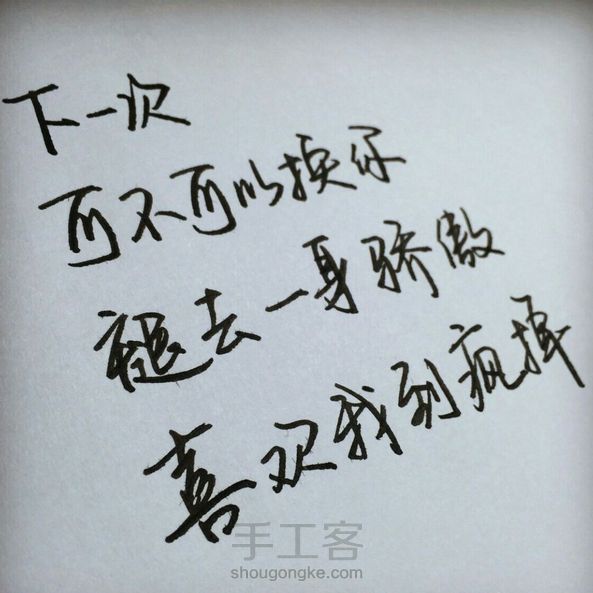 下一次
可不可以换你
褪去一身骄傲
喜欢我到疯掉
手工客
shougongke.com